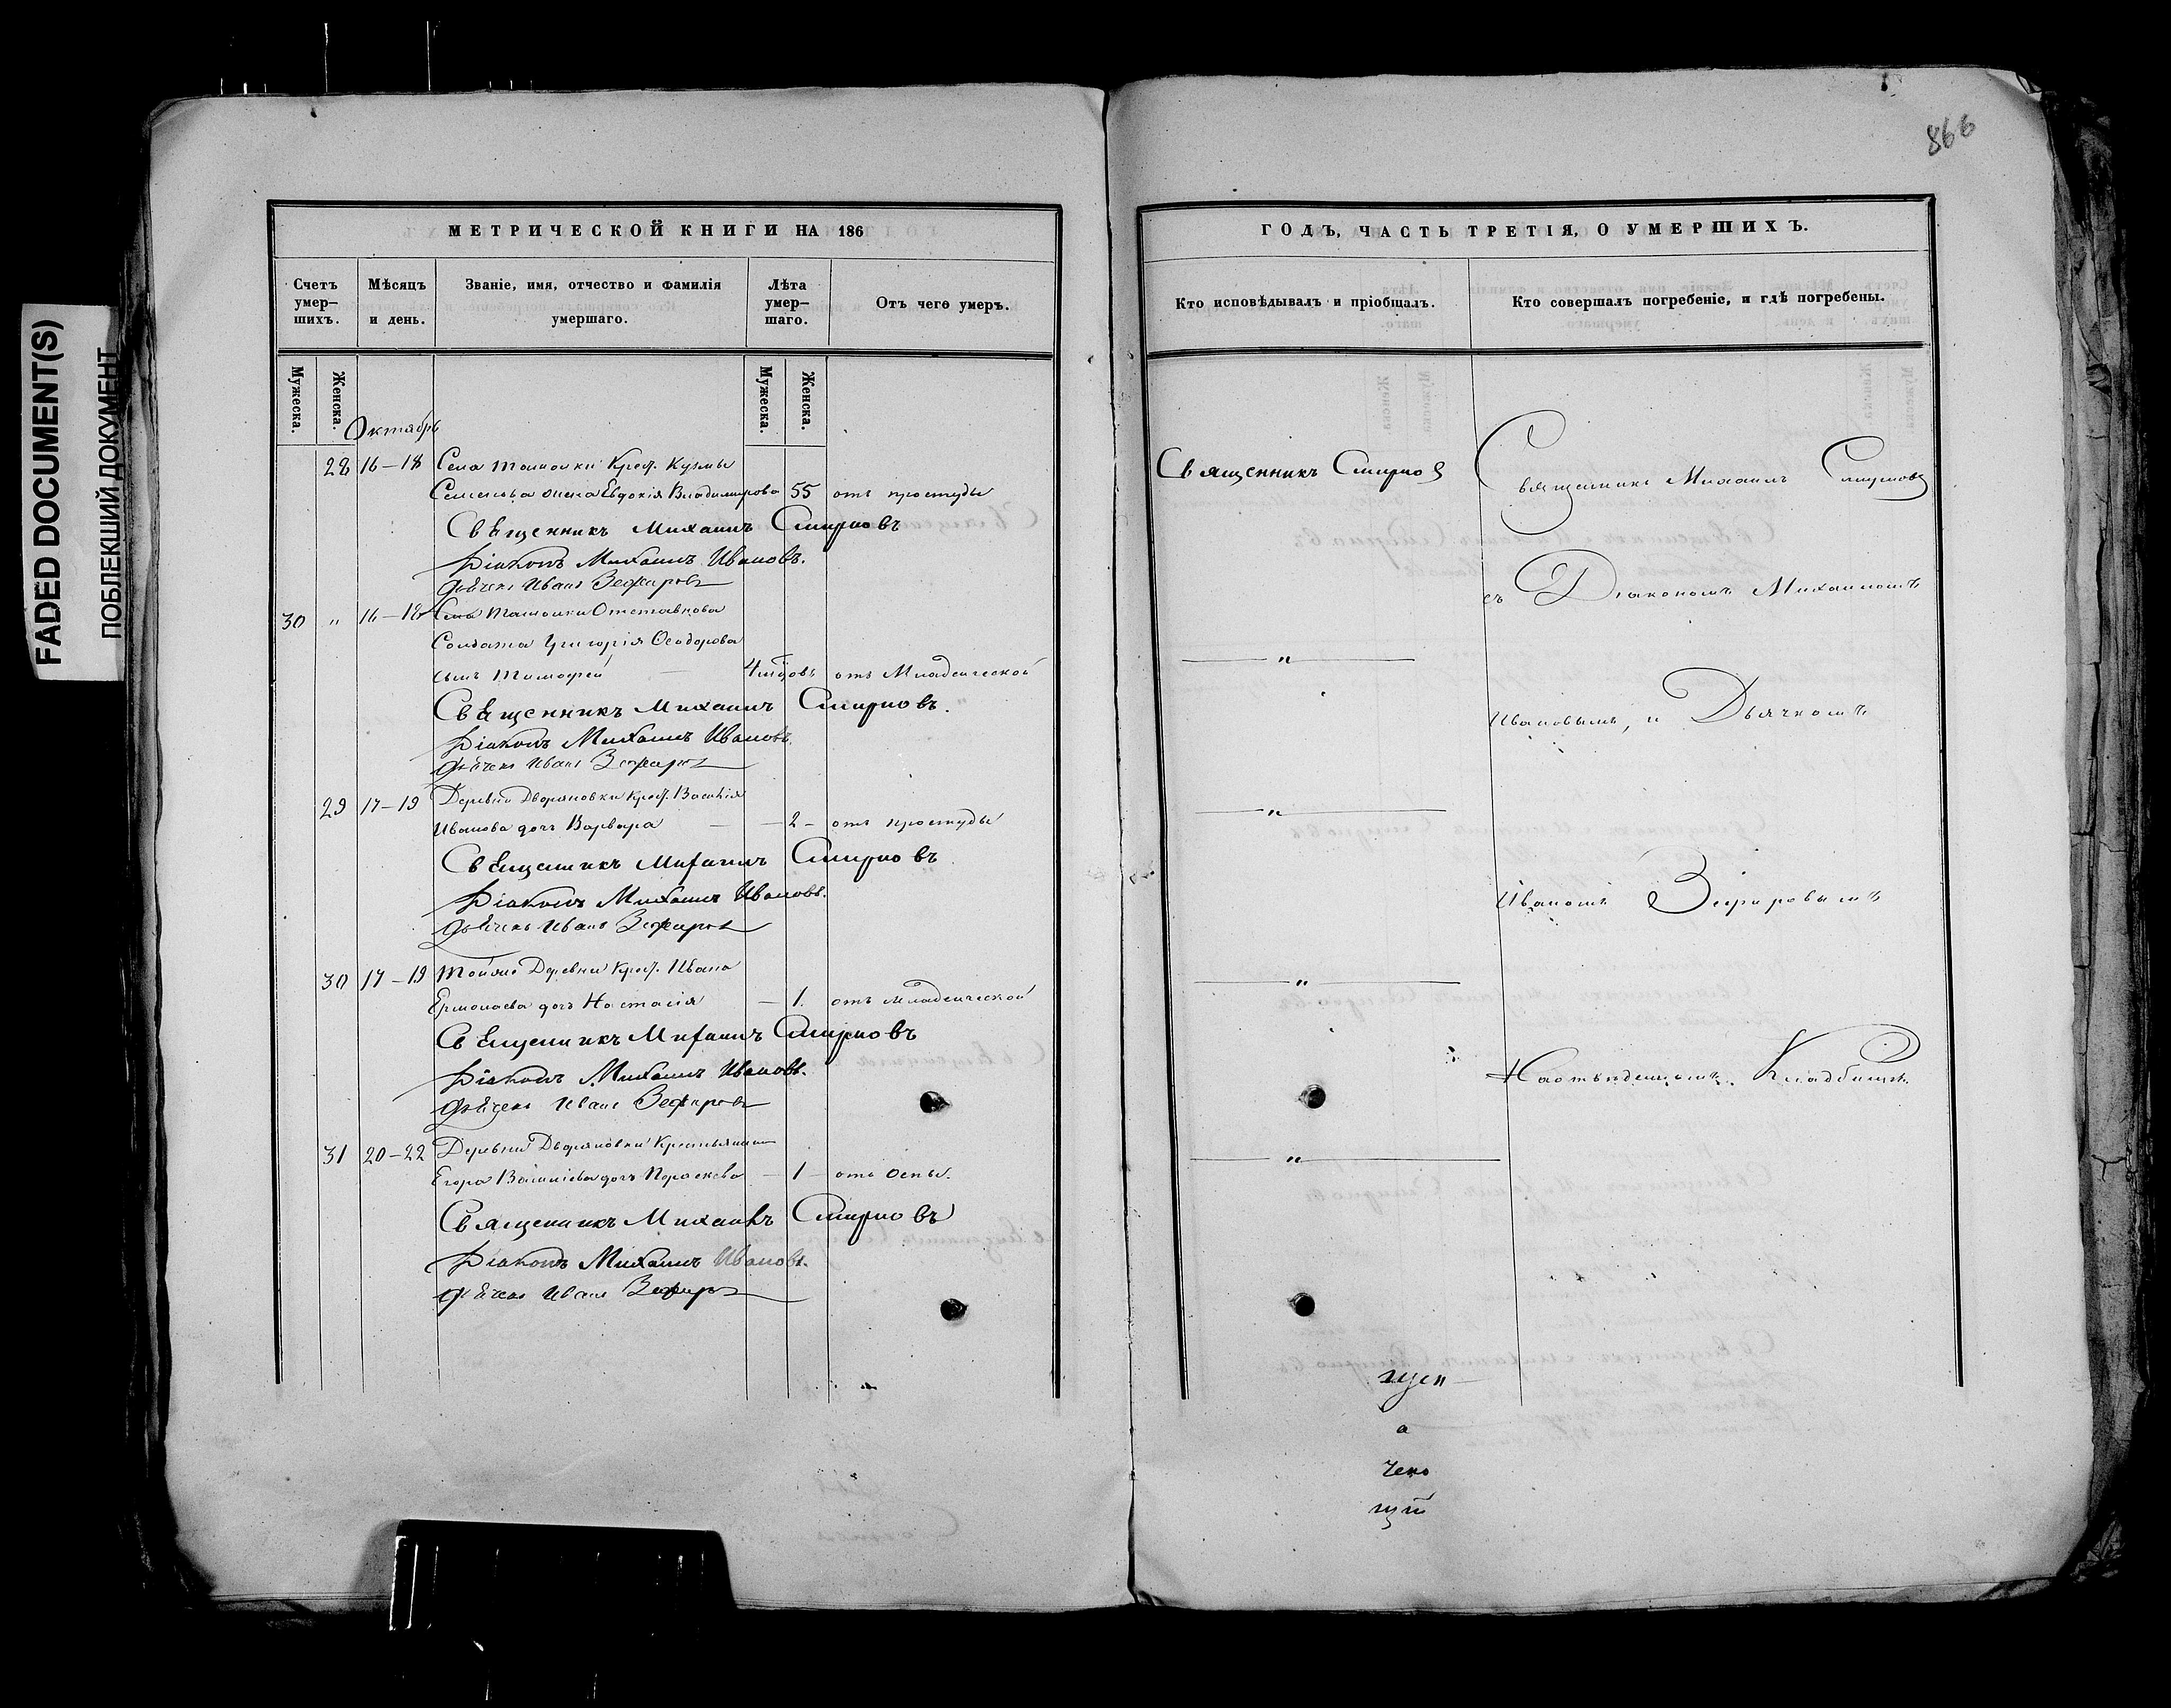 FADED DOCUMENT(S)
ПОБЛЕКШИЙ ДОКУМЕНТ
866
МЕТРИЧЕСКОЙ КНИГИ НА 186
Счетъ умер-шихъ.
Мѣсяцъ и день.
Званіе, имя, отчество и фамилія умершаго.
Лѣта умер-шаго.
Отъ чего умеръ.
Мужеска.
Женска.
Мужеска.
Женска.
Октябрь
28 16–18 Села Крест. Кузмы
Семенова жена Евдокія Владимирова 55 отъ простуды
Священникъ Михаилъ Смирновъ
Діаконъ Михаилъ Ивановъ.
Дьячекъ Иванъ Зефировъ
30 " 16–18 Села Отставнова
Солдата Григорія Ѳеодорова
сынъ Тимофей 4 отъ Младенческой
Священникъ Михаилъ Смирновъ.
Діаконъ Михаилъ Ивановъ.
Дьячекъ Иванъ Зефировъ
29 17–19 Деревни Дворяновки Крест. Василія
Иванова дочь Варвара — 2 – отъ простуды
Священникъ Михаилъ Смирновъ
Діаконъ Михаилъ Ивановъ.
Дьячекъ Иванъ Зефировъ
30 17–19 Тойже Деревни Крест. Ивана
Ермолаева дочь Настасія — 1. отъ младенческой
Священникъ Михаилъ Смирновъ
Діаконъ Михаилъ Ивановъ.
Дьячекъ Иванъ Зефировъ
31 20–22 Деревни Дворяновки Крестьянина
Егора Васильева дочь Параскева — 1 – отъ оспы.
Священникъ Михаилъ Смирновъ
Діаконъ Михаилъ Ивановъ.
Дьячекъ Иванъ Зефировъ
ГОДЪ, ЧАСТЬ ТРЕТІЯ, О УМЕРШИХЪ.
Кто исповѣдывалъ и пріобщалъ.
Кто совершалъ погребеніе, и гдѣ погребены.
Священникъ Смирновъ
— " —
— " —
— " —
— " —
Священникъ Михаилъ Смирновъ
съ Діакономъ Михаиломъ
Ивановымъ, и Дьячкомъ
Иваномъ Зефировымъ
Кладбищѣ.
щен
а
чекъ